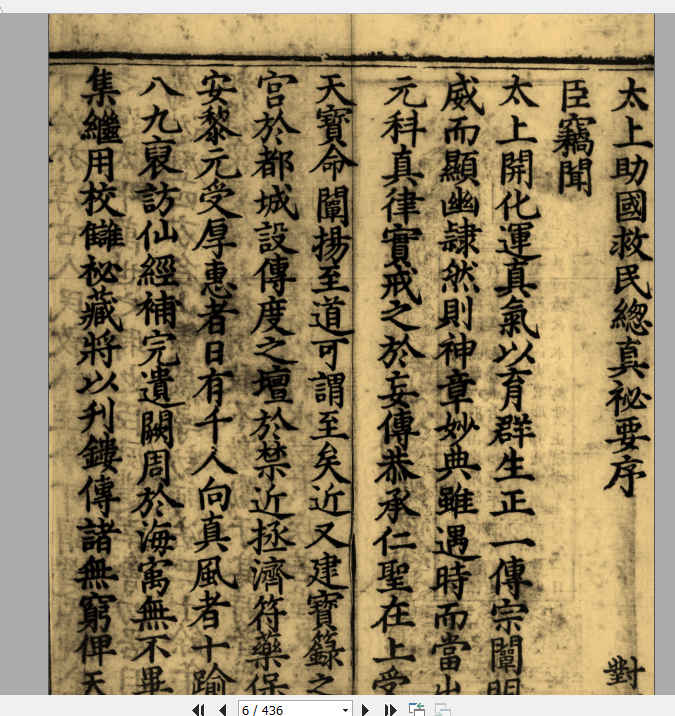 太上助國救民總真祕要序
對
臣竊聞
太上開化運真氣以育群生正一傳宗闡明
威而顯幽隷然則神章妙典雖遇時而當出
元科真律實戒之於妄傳恭承仁聖在上受
天寶命闡揚至道可謂至矣近又建寶籙之
宮於都城設傳度之壇於禁近拯濟符藥保
安黎元受厚惠者日有千人向真風者十踰
八九裒訪仙經補完遺闕周於海寓無不畢
集繼用校讎祕藏將以刋鏤傳諸無窮俾天
6 / 436